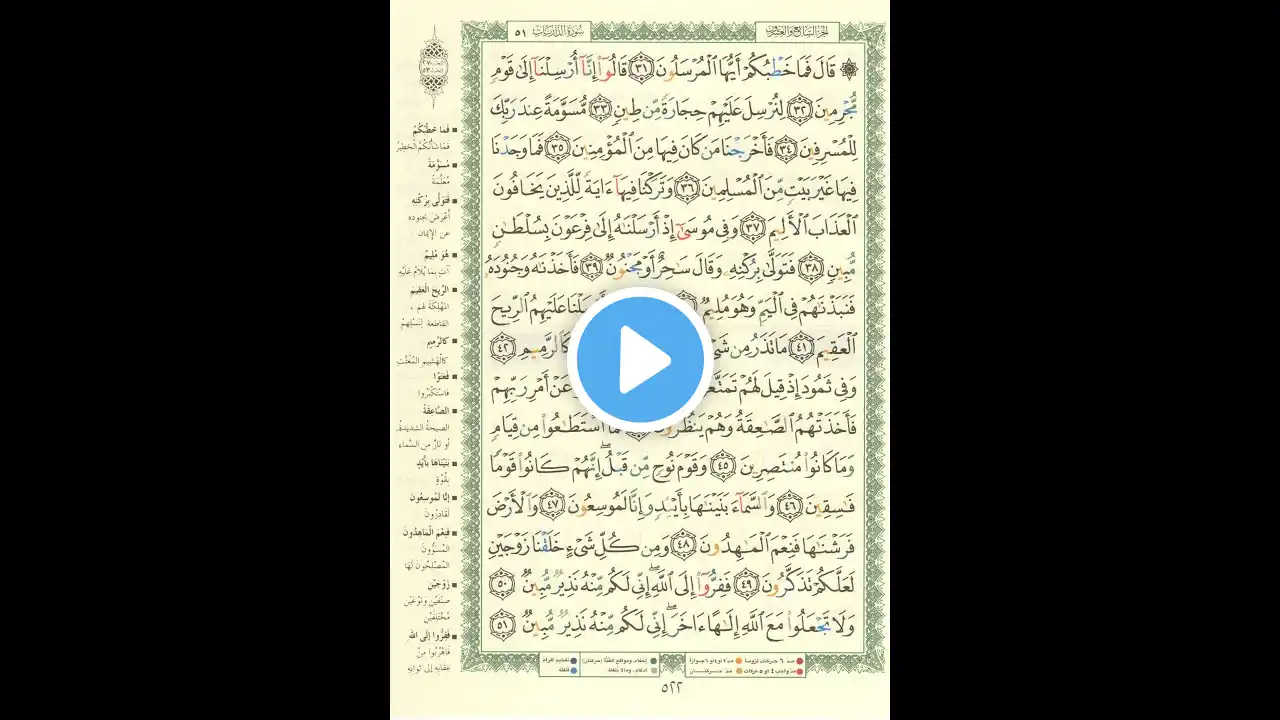 سُورَةُ الذَّارِيَاتِ ٥١
الجزء السابع والعشرون
۞ قَالَ فَمَا خَطْبُكُمْ أَيُّهَا ٱلْمُرْسَلُونَ ٣١ قَالُوٓا۟ إِنَّآ أُرْسِلْنَآ إِلَىٰ قَوْمٍ
مُّجْرِمِينَ ٣٢ لِنُرْسِلَ عَلَيْهِمْ حِجَارَةً مِّن طِينٍ ٣٣ مُّسَوَّمَةً عِندَ رَبِّكَ
لِلْمُسْرِفِينَ ٣٤ فَأَخْرَجْنَا مَن كَانَ فِيهَا مِنَ ٱلْمُؤْمِنِينَ ٣٥ فَمَا وَجَدْنَا
فِيهَا غَيْرَ بَيْتٍ مِّنَ ٱلْمُسْلِمِينَ ٣٦ وَتَرَكْنَا فِيهَآ ءَايَةً لِّلَّذِينَ يَخَافُونَ
ٱلْعَذَابَ ٱلْأَلِيمَ ٣٧ وَفِى مُوسَىٰٓ إِذْ أَرْسَلْنَٰهُ إِلَىٰ فِرْعَوْنَ بِسُلْطَٰنٍ
مُّبِينٍ ٣٨ فَتَوَلَّىٰ بِرُكْنِهِۦ وَقَالَ سَٰحِرٌ أَوْ مَجْنُونٌ ٣٩ فَأَخَذْنَٰهُ وَجُنُودَهُۥ
فَنَبَذْنَٰهُمْ فِى ٱلْيَمِّ وَهُوَ مُلِيمٌ عَلَيْهِمُ ٱلرِّيحَ
ٱلْعَقِيمَ ٤١ مَا تَذَرُ مِن كَٱلرَّمِيمِ ٤٢
وَفِى ثَمُودَ إِذْ قِيلَ لَهُمْ عَنْ أَمْرِ رَبِّهِمْ
فَأَخَذَتْهُمُ ٱلصَّٰعِقَةُ وَهُمْ يَنظُرُونَ ٱسْتَطَٰعُوا۟ مِن قِيَامٍ
وَمَا كَانُوا۟ مُنتَصِرِينَ ٤٥ وَقَوْمَ نُوحٍ مِّن قَبْلُ ۖ إِنَّهُمْ كَانُوا۟ قَوْمًا
فَٰسِقِينَ ٤٦ وَٱلسَّمَآءَ بَنَيْنَٰهَا بِأَيْي۟دٍ وَإِنَّا لَمُوسِعُونَ ٤٧ وَٱلْأَرْضَ
فَرَشْنَٰهَا فَنِعْمَ ٱلْمَٰهِدُونَ ٤٨ وَمِن كُلِّ شَىْءٍ خَلَقْنَا زَوْجَيْنِ
لَعَلَّكُمْ تَذَكَّرُونَ ٤٩ فَفِرُّوٓا۟ إِلَى ٱللَّهِ ۖ إِنِّى لَكُم مِّنْهُ نَذِيرٌ مُّبِينٌ ٥٠
وَلَا تَجْعَلُوا۟ مَعَ ٱللَّهِ إِلَٰهًا ءَاخَرَ ۖ إِنِّى لَكُم مِّنْهُ نَذِيرٌ مُّبِينٌ ٥١
فَمَا خَطْبُكُمْ
فَمَا شَأْنُكُمُ الْخَطِيرُ
مُسَوَّمَةً
مُعَلَّمَةً
فَتَوَلَّى بِرُكْنِهِ
أَعْرَضَ بِجُنُودِهِ
عَنِ الإِيمَانِ
هُوَ مُلِيمٌ
آتٍ بِمَا يُلَامُ عَلَيْهِ
الرِّيحَ الْعَقِيمَ
المُهْلِكَةَ لَهُمْ ،
القَاطِعَةَ لِنَسْلِهِمْ
كَالرَّمِيمِ
كَالْهَشِيمِ الْمُفَتَّتِ
فَعَتَوْا
فَاسْتَكْبَرُوا
الصَّاعِقَةُ
الصيحةُ الشديدةُ،
أو نارٌ من السَّماء
بَنَيْنَاهَا بِأَيْدٍ
بِقُوَّةٍ
إِنَّا لَمُوسِعُونَ
لَقَادِرُونَ
فَنِعْمَ الْمَاهِدُونَ
المُسَوُّونَ
المُصْلِحُونَ لَهَا
زَوْجَيْنِ
صِنْفَيْنِ وَنَوْعَيْنِ
مُخْتَلِفَيْنِ
فَفِرُّوا إِلَى اللهِ
فَاهْرُبُوا مِنْ
عِقَابِهِ إِلَى ثَوَابِهِ
مدّ ٦ حركات لزوماً
مدّ ٢ او ٤ او ٦ جوازاً
إخفاء، ومواقع الغُنَّة (حركتان)
تفخيم الراء
مدّ واجب ٤ او ٥ حركات
مدّ حركتان
ادغام، وما لا يُلفظ
قلقلة
٥٢٢